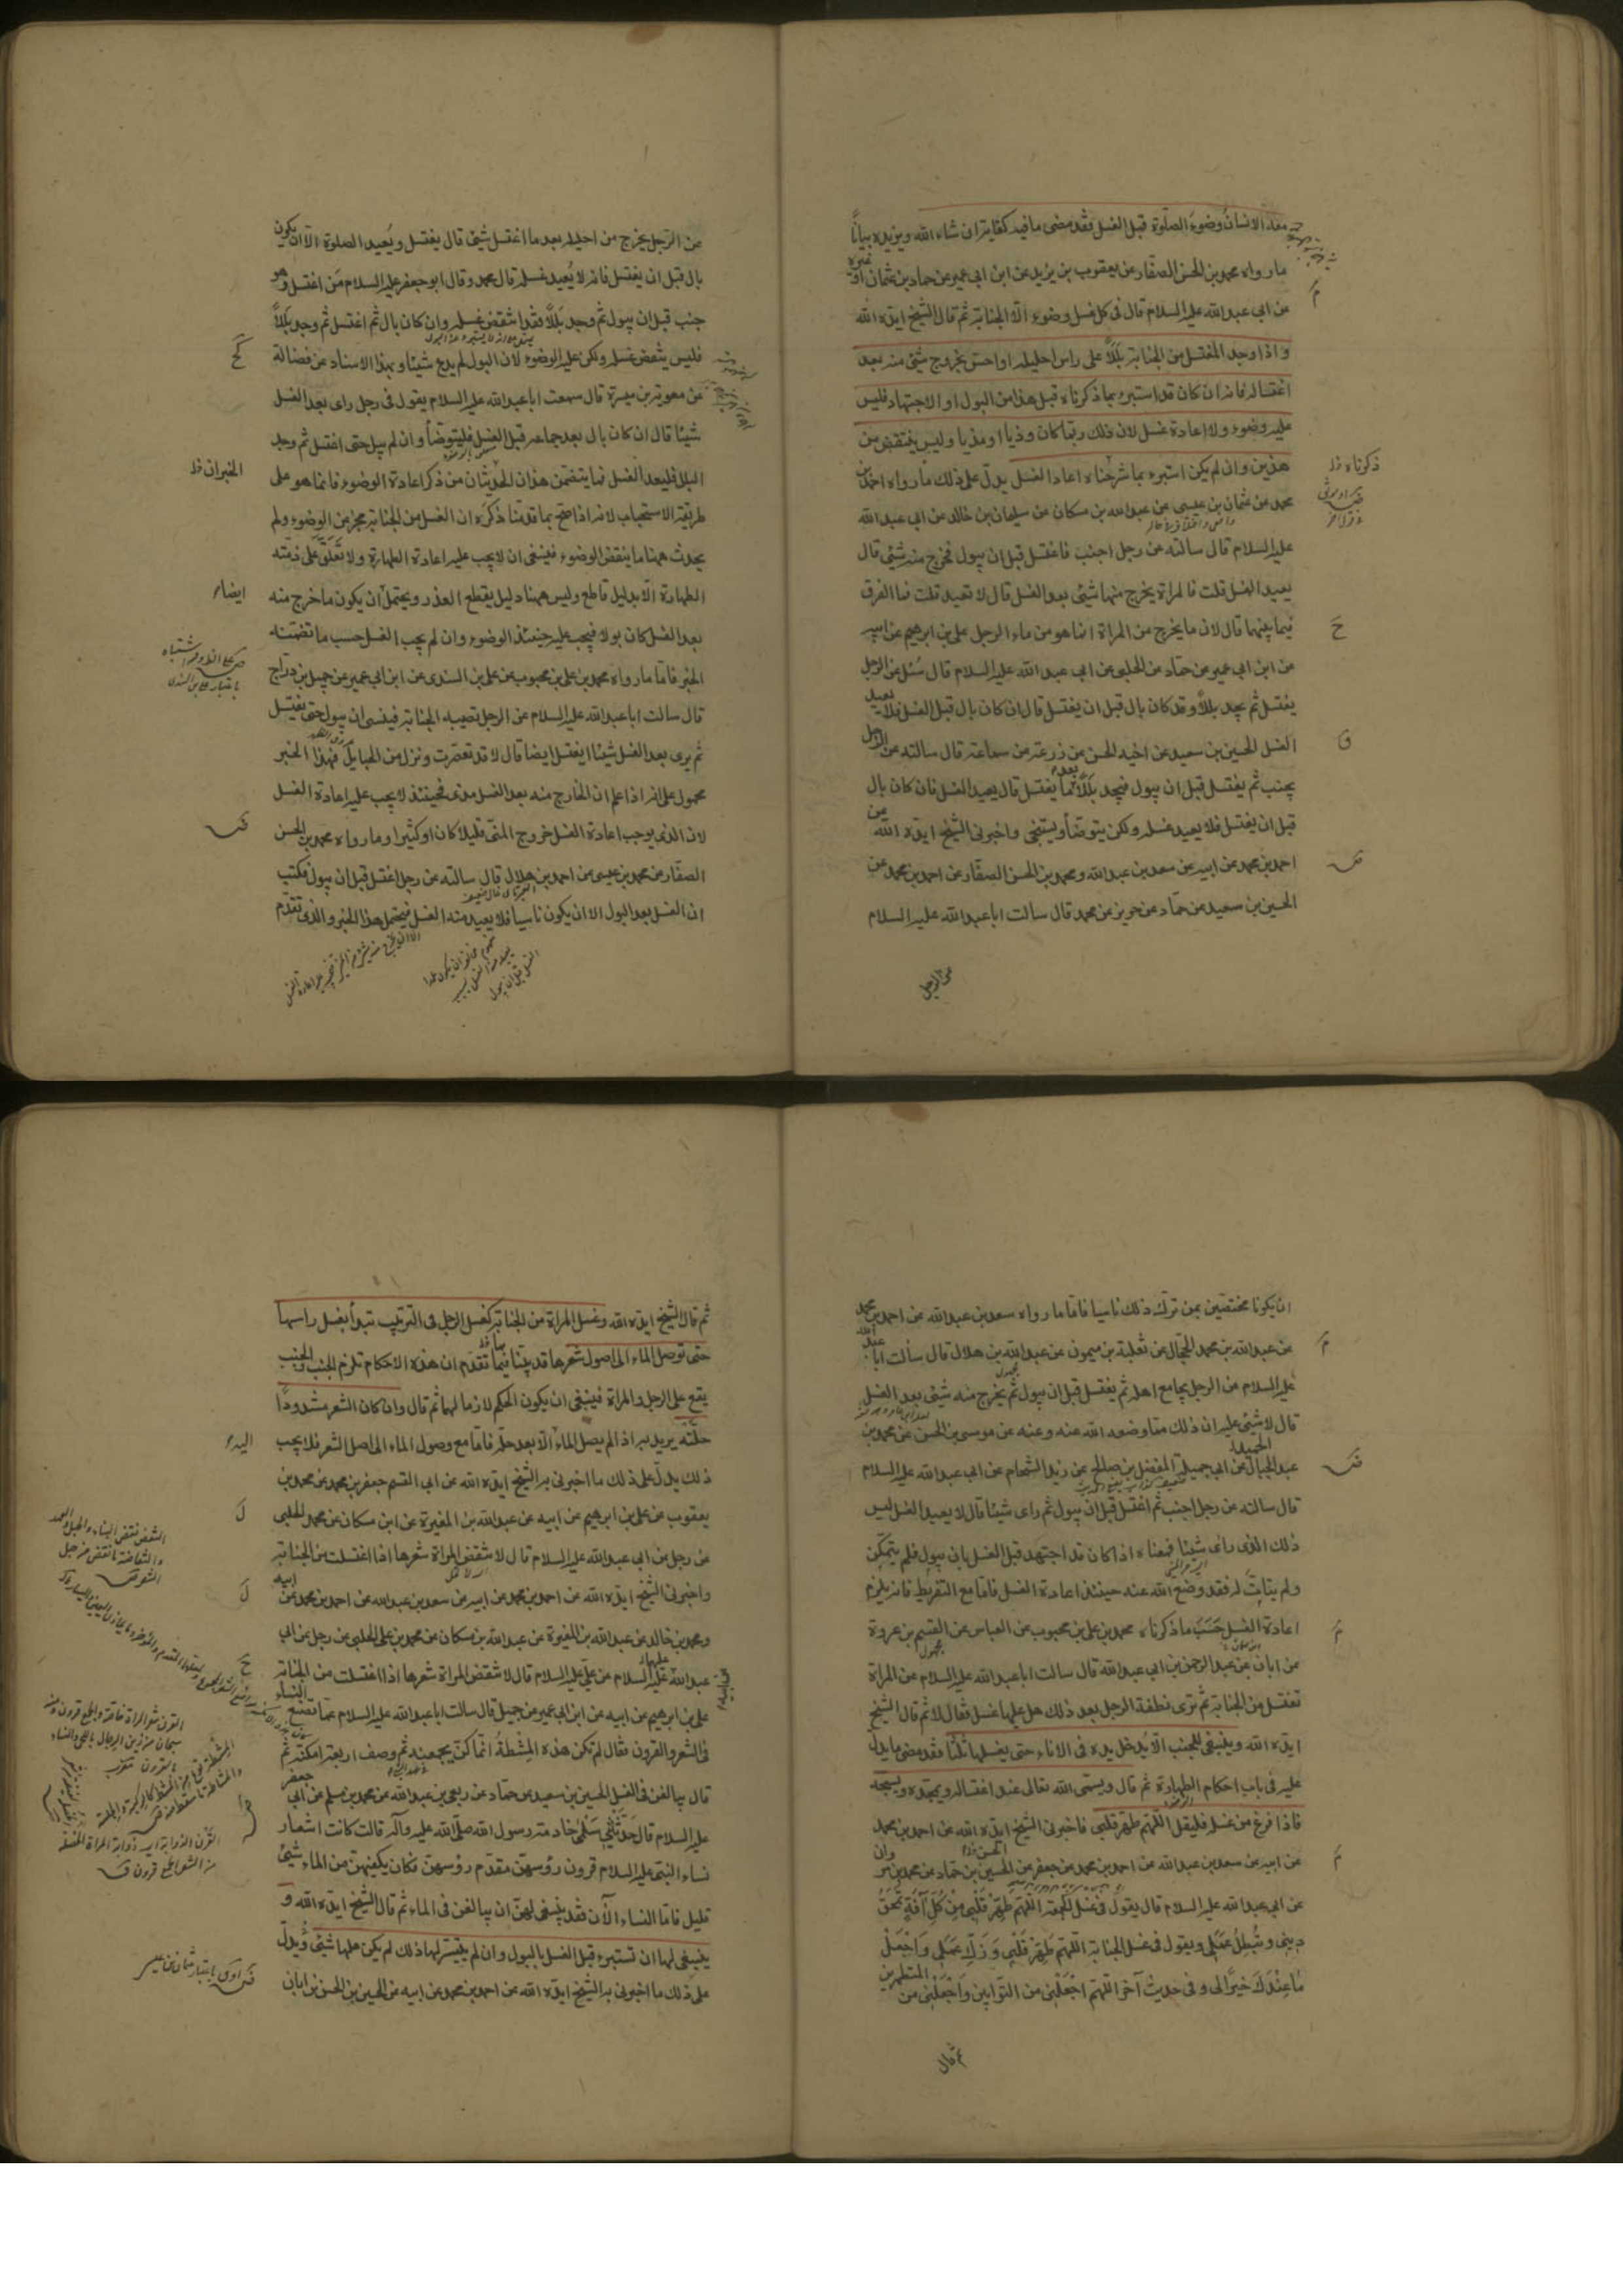 بعد الانسان وضوء الصلوة قبل الغسل فقد مضى ما فيه كفاية ان شاء الله ويزيده بيانًا
ما رواه محمد بن الحسن الصفار عن يعقوب بن يزيد عن ابن ابي عمير عن حماد بن عثمان او غيره
عن ابي عبد الله عليه السلام قال في كل غسل وضوء الا الجنابة ثم قال الشيخ ايده الله
واذا وجد المغتسل من الجنابة بللًا على راس احليله او احس بخروج شئ منه بعد
اغتساله فانه ان كان قد استبرء بما ذكرناه قبل هذا من البول او الاجتهاد فليس
عليه وضوء ولا اعادة غسل لان ذلك ربما كان وذيا او مذيا وليس ينتقض من
هذين وان لم يكن استبرء بما شرحناه اعاد الغسل يدل على ذلك ما رواه احمد بن
محمد عن عثمان بن عيسى عن عبد الله بن مسكان عن سليمان بن خالد عن ابي عبد الله
عليه السلام قال سالته عن رجل اجنب فاغتسل قبل ان يبول فخرج منه شئ قال
يعيد الغسل قلت فالمراة يخرج منها شئ بعد الغسل قال لا تعيد قلت فما الفرق
فيما بينهما قال لان ما يخرج من المراة انما هو من ماء الرجل على بن ابرهيم عن ابيه
عن ابن ابي عمير عن حماد عن الحلبى عن ابى عبد الله عليه السلام قال سئل عن الرجل
يغتسل ثم يجد بللًا وقد كان بال قبل ان يغتسل قال ان كان بال قبل الغسل فلا يعيد
الغسل الحسين بن سعيد عن اخيه الحسن عن زرعة عن سماعة قال سالته عن الرجل
يجنب ثم يغتسل قبل ان يبول فيجد بللًا بعد ما يغتسل قال يعيد الغسل فان كان بال
قبل ان يغتسل فلا يعيد غسله ولكن يتوضأ ويستنجى واخبرنى الشيخ ايده الله عن
احمد بن محمد عن ابيه عن سعد بن عبد الله ومحمد بن الحسن الصفار عن احمد بن محمد عن
الحسين بن سعيد عن حماد عن حريز عن محمد قال سالت ابا عبد الله عليه السلام
عن الرجل
ذكرناه
عن الرجل يخرج من احليله بعد ما اغتسل شئ قال يغتسل ويعيد الصلوة الا ان يكون
بال قبل ان يغتسل فانه لا يعيد غسله قال محمد وقال ابو جعفر عليه السلام من اغتسل وهو
جنب قبل ان يبول ثم وجد بللًا فقد انتقض غسله وان كان بال ثم اغتسل ثم وجد بللًا
فليس ينقض غسله ولكن عليه الوضوء لان البول لم يدع شيئا وبهذا الاسناد عن فضالة
عن معوية بن ميسرة قال سمعت ابا عبد الله عليه السلام يقول فى رجل راى بعد الغسل
شيئا قال ان كان بال بعد جماعه قبل الغسل فليتوضأ وان لم يبل حتى اغتسل ثم وجد
البلل فليعد الغسل فما يتضمن هذان الحديثان من ذكر اعادة الوضوء فانما هو على
طريقة الاستحباب لانه اذا صح بما قدمنا ذكره ان الغسل من الجنابة مجز عن الوضوء ولم
يحدث ههنا ما ينقض الوضوء فينبغى ان لا يجب عليه اعادة الطهارة ولا تعلق على ذمته
الطهارة الا بدليل قاطع وليس ههنا دليل يقطع العذر ويحتمل ان يكون ما خرج منه
بعد الغسل كان بولا فيجب عليه حينئذ الوضوء وان لم يجب الغسل حسب ما تضمنه
الخبر فاما ما رواه محمد بن على بن محبوب عن على بن السندى عن ابن ابى عمير عن جميل بن دراج
قال سالت ابا عبد الله عليه السلام عن الرجل تصيبه الجنابة فينسى ان يبول حتى يغتسل
ثم يرى بعد الغسل شيئا ايغتسل ايضا قال لا قد تعصرت ونزل من الحبايل فهذا الخبر
محمول على انه اذا علم ان الخارج منه بعد الغسل مذى فحينئذ لا يجب عليه اعادة الغسل
لان الذى يوجب اعادة الغسل خروج المنى قليلا كان او كثيرا وما رواه محمد بن الحسن
الصفار عن محمد بن عيسى عن احمد بن هلال قال سالته عن رجل اغتسل قبل ان يبول فكتب
ان الغسل بعد البول الا ان يكون ناسيا فلا يعيد منه الغسل فيحتمل هذا الخبر والذى تقدم
الخبران
ايضا
ان يكونا مختصين بمن ترك ذلك ناسيا فاما ما رواه سعد بن عبد الله عن احمد بن محمد
عن عبد الله بن محمد الحجال عن ثعلبة بن ميمون عن عبد الله بن هلال قال سألت ابا عبد الله
عليه السلام عن الرجل يجامع اهله ثم يغتسل قبل ان يبول ثم يخرج منه شئ بعد الغسل
قال لا شئ عليه ان ذلك مما وضعه الله عنه وعنه عن موسى بن الحسن عن محمد بن
عبد الحميد عن ابى جميلة المفضل بن صالح عن زيد الشحام عن ابى عبد الله عليه السلام
قال سالته عن رجل اجنب ثم اغتسل قبل ان يبول ثم راى شيئا قال لا يعيد الغسل ليس
ذلك الذى راى شيئا فمعناه اذا كان قد اجتهد قبل الغسل بان يبول فلم يتمكن
ولم يتأت له فقد وضع الله عنه حينئذ اعادة الغسل فاما مع التفريط فانه يلزم
اعادة الغسل حسب ما ذكرناه محمد بن على بن محبوب عن العباس عن القسم بن عروة
عن ابان عن عبد الرحمن بن ابى عبد الله قال سالت ابا عبد الله عليه السلام عن المراة
تغتسل من الجنابة ثم ترى نطفة الرجل بعد ذلك هل عليها غسل فقال لا ثم قال الشيخ
ايده الله وينبغى للجنب الا يدخل يده فى الاناء حتى يغسلها ثلثا فقد مضى ما يدل
عليه فى باب احكام الطهارة ثم قال ويسمى الله تعالى عند اغتساله ويمجده ويسبحه
فاذا فرغ من غسله فليقل اللهم طهر قلبى فاخبرنى الشيخ ايده الله عن احمد بن محمد
عن ابيه عن سعد بن عبد الله عن احمد بن محمد عن جعفر عن الحسين بن حماد عن محمد بن مروان
عن ابى عبد الله عليه السلام قال يقول فى غسل الجمعة اللهم طهر قلبى من كل آفة تمحق
دينى وتبطل عملى ويقول فى غسل الجنابة اللهم طهر قلبى وزك عملى واجعل
ما عندك خيرا لى وفى حديث آخر اللهم اجعلنى من التوابين واجعلنى من المتطهرين
ثم قال
ثم قال الشيخ ايده الله وغسل المراة من الجنابة كغسل الرجل فى الترتيب تبدأ بغسل راسها
حتى توصل الماء الى اصول شعرها قد بينا فيما تقدم ان هذه الاحكام تلزم الجنب والجنب
يقع على الرجل والمراة فينبغى ان يكون الحكم لازما لهما ثم قال وان كان الشعر مشدودًا
حلته يريد به اذا لم يصل الماء الا بعد حله فاما مع وصول الماء الى اصل الشعر فلا يجب
ذلك يدل على ذلك ما اخبرنى به الشيخ ايده الله عن ابى القسم جعفر بن محمد عن محمد بن
يعقوب عن على بن ابرهيم عن ابيه عن عبد الله بن المغيرة عن ابن مسكان عن محمد الحلبى
عن رجل عن ابى عبد الله عليه السلام قال لا تنقض المراة شعرها اذا اغتسلت من الجنابة
واخبرنى الشيخ ايده الله عن احمد بن محمد عن ابيه عن سعد بن عبد الله عن احمد بن محمد عن ابيه
ومحمد بن خالد عن عبد الله بن المغيرة عن عبد الله بن مسكان عن محمد بن على الحلبى عن رجل عن ابى
عبد الله عليه السلام عن على عليه السلام قال لا تنقض المراة شعرها اذا اغتسلت من الجنابة
على بن ابرهيم عن ابيه عن ابن ابى عمير عن جميل قال سالت ابا عبد الله عليه السلام عما تصنع النساء
فى الشعر والقرون فقال لم تكن هذه المشطة انما كن يجمعنه ثم وصف اربعة امكنة ثم
قال يبالغن فى الغسل الحسين بن سعيد عن حماد عن ربعى بن عبد الله عن محمد بن مسلم عن ابى جعفر
عليه السلام قال حدثتنى سلمى خادمة رسول الله صلى الله عليه وآله قالت كانت اشعار
نساء النبى عليه السلام قرون رؤسهن مقدم رؤسهن فكان يكفيهن من الماء شئ
قليل فاما النساء الآن فقد ينبغى لهن ان يبالغن فى الماء ثم قال الشيخ ايده الله و
ينبغى لها ان تستبرء قبل الغسل بالبول وان لم يتيسر لها ذلك لم يكن عليها شئ ويدل
على ذلك ما اخبرنى به الشيخ ايده الله عن احمد بن محمد عن ابيه عن الحسين بن الحسن بن ابان
اليه